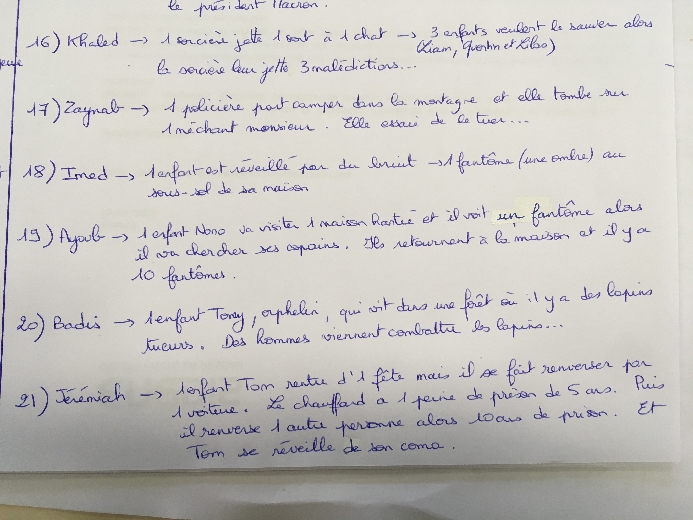 le président Macron.
16) Khaled → 1 sorcière jette 1 sort à 1 chat → 3 enfants veulent le sauver alors
(Liam, Quentin et Lilso)
la sorcière leur jette 3 malédictions...
17) Zaynab → 1 policière part camper dans la montagne et elle tombe sur
1 méchant monsieur. Elle essaie de le tuer...
18) Imed → 1 enfant est réveillé par du bruit → 1 fantôme (une ombre) au
sous-sol de sa maison
19) Ayoub → 1 enfant Nono va visiter 1 maison hantée et il voit un fantôme alors
il va chercher ses copains. Ils retournent à la maison et il y a
10 fantômes.
20) Badis → 1 enfant Tony, orphelin, qui vit dans une forêt où il y a des lapins
tueurs. Des hommes viennent combattre les lapins...
21) Jérémiah → 1 enfant Tom rentre d'1 fête mais il se fait renverser par
1 voiture. Le chauffard a 1 peine de prison de 5 ans. Puis
il renverse 1 autre personne alors 10 ans de prison. Et
Tom se réveille de son coma.